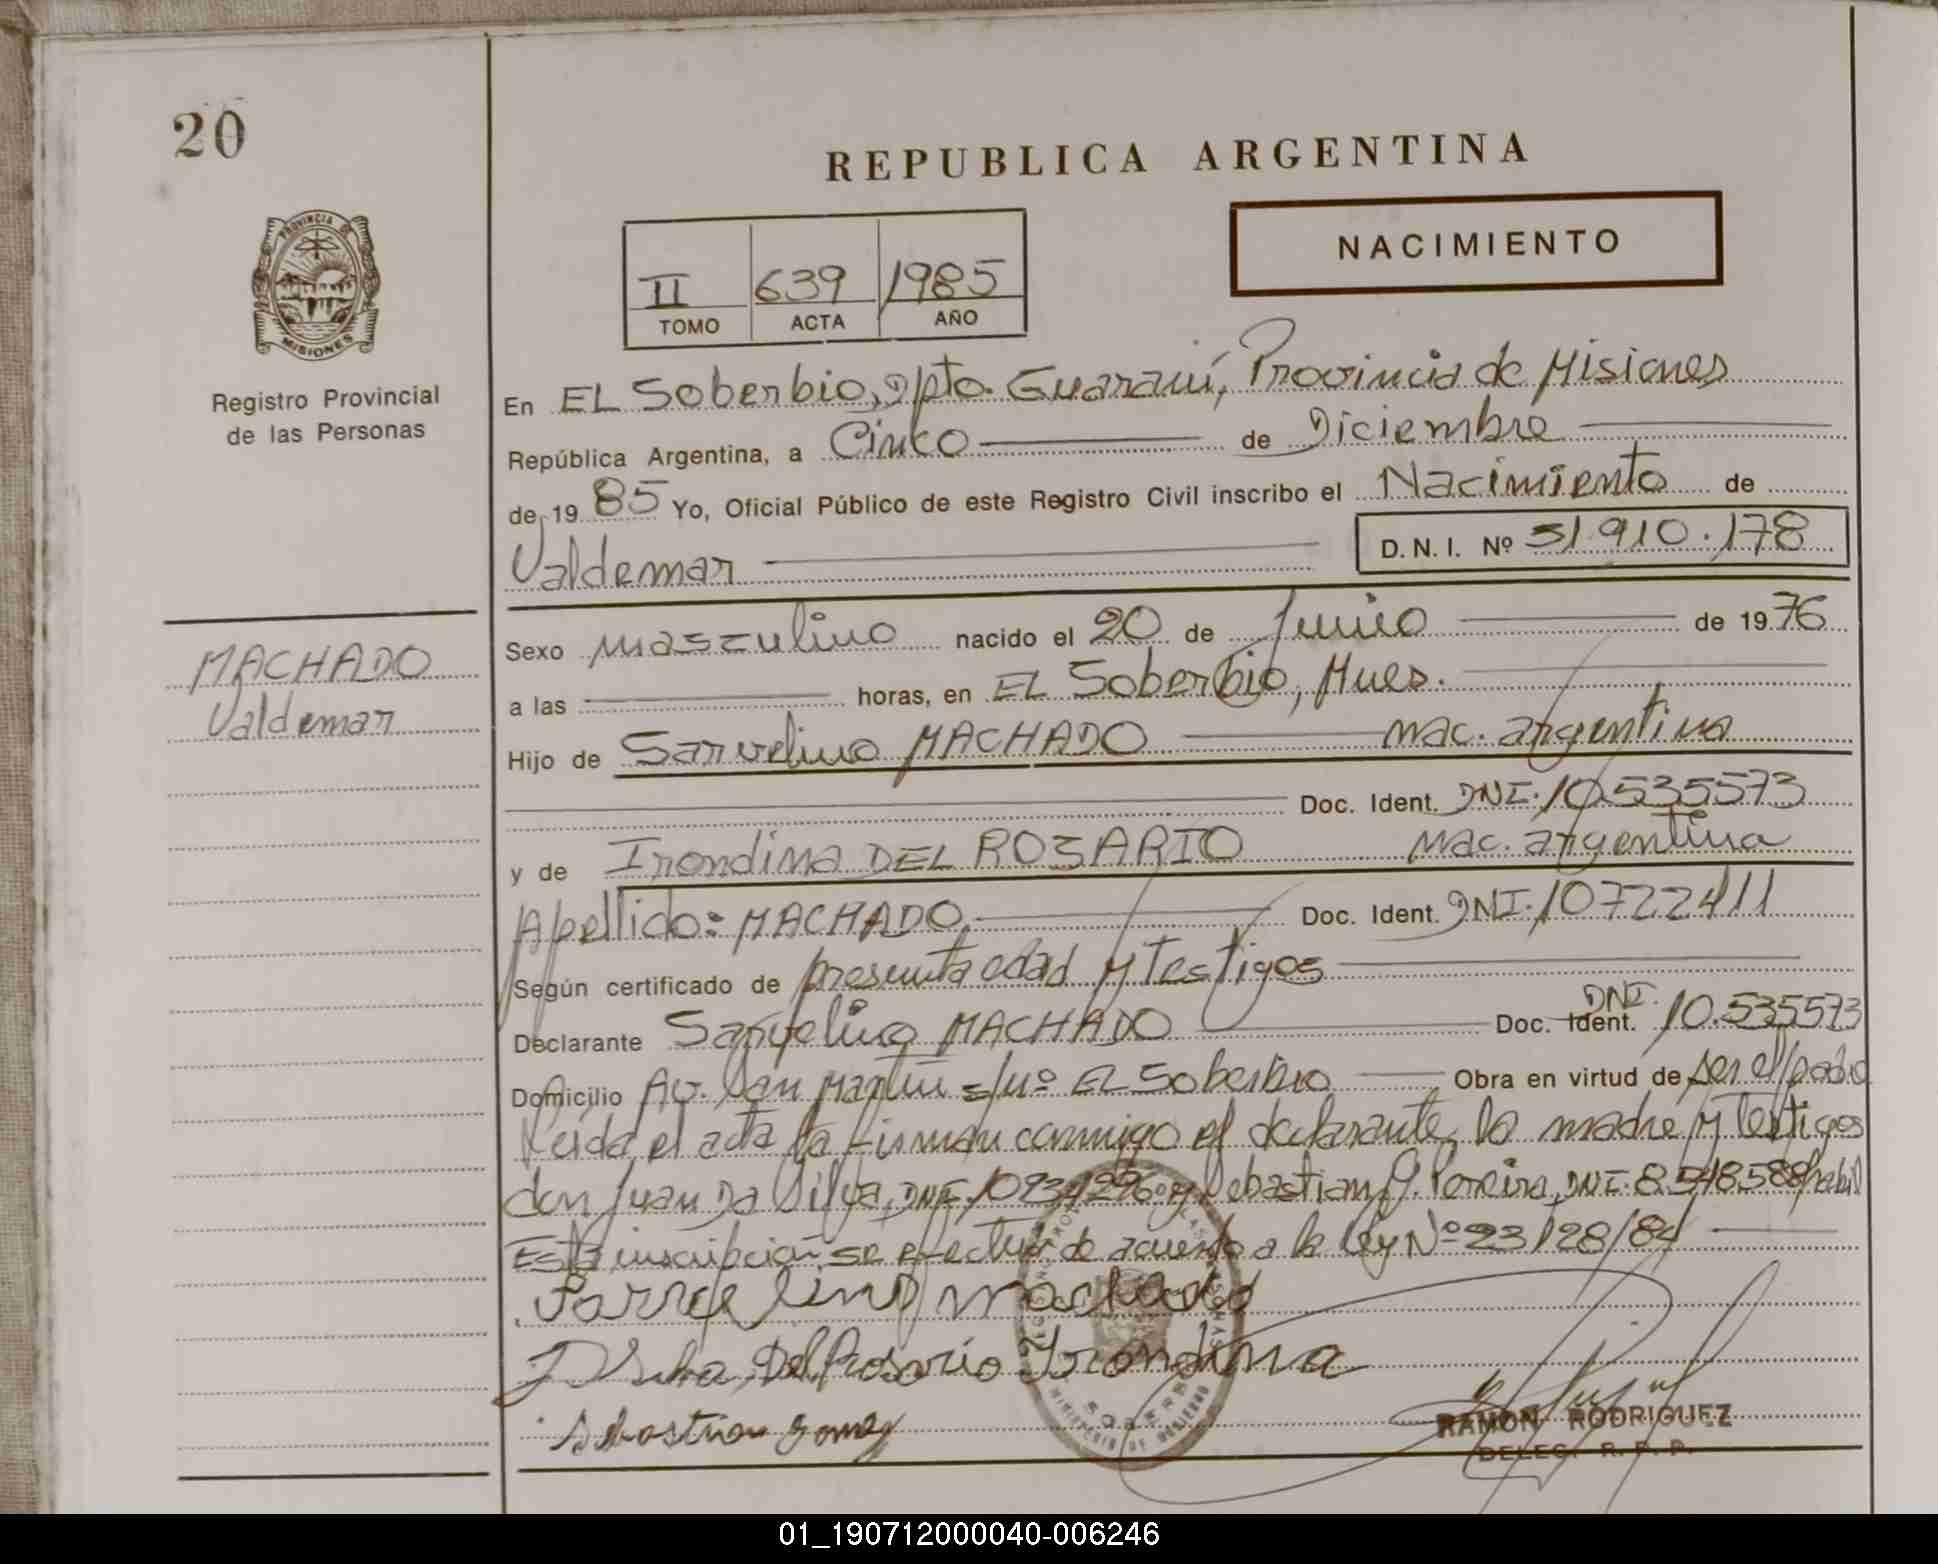 20
REPUBLICA ARGENTINA
NACIMIENTO
II 639 1985
TOMO ACTA AÑO
PROVINCIA DE
MISIONES
Registro Provincial
de las Personas
En EL Soberbio, Dpto. Guaraní, Provincia de Misiones
República Argentina, a Cinco de Diciembre
de 1985 Yo, Oficial Público de este Registro Civil inscribo el Nacimiento de
Valdemar D. N. I. Nº 31.910.178
MACHADO
Valdemar
Sexo masculino nacido el 20 de Junio de 1976
a las horas, en EL Soberbio, Mnes.
Hijo de Sarvelino MACHADO nac. argentina
Doc. Ident. DNI. 10.535573
y de Irondina DEL ROSARIO nac. argentina
Apellido: MACHADO. Doc. Ident. DNI. 10722411
Según certificado de presunta edad y Testigos
Declarante Sarvelino MACHADO Doc. Ident. DNI. 10.535573
Domicilio Av. San Martín s/nº EL Soberbio Obra en virtud de ser el padre
Leída el acta la firman conmigo el declarante, la madre y Testigos
don Juan Da Silva, DNI. y Sebastian G. Pereira, DNI. 8.548.588
Esta inscripción se efectúa de acuerdo a la ley Nº 23128/84
Sarvelino machado
Del Rosario Irondina
Sebastian gomez
RAMON RODRIGUEZ
DELEG. R. P. P.
01_190712000040-006246